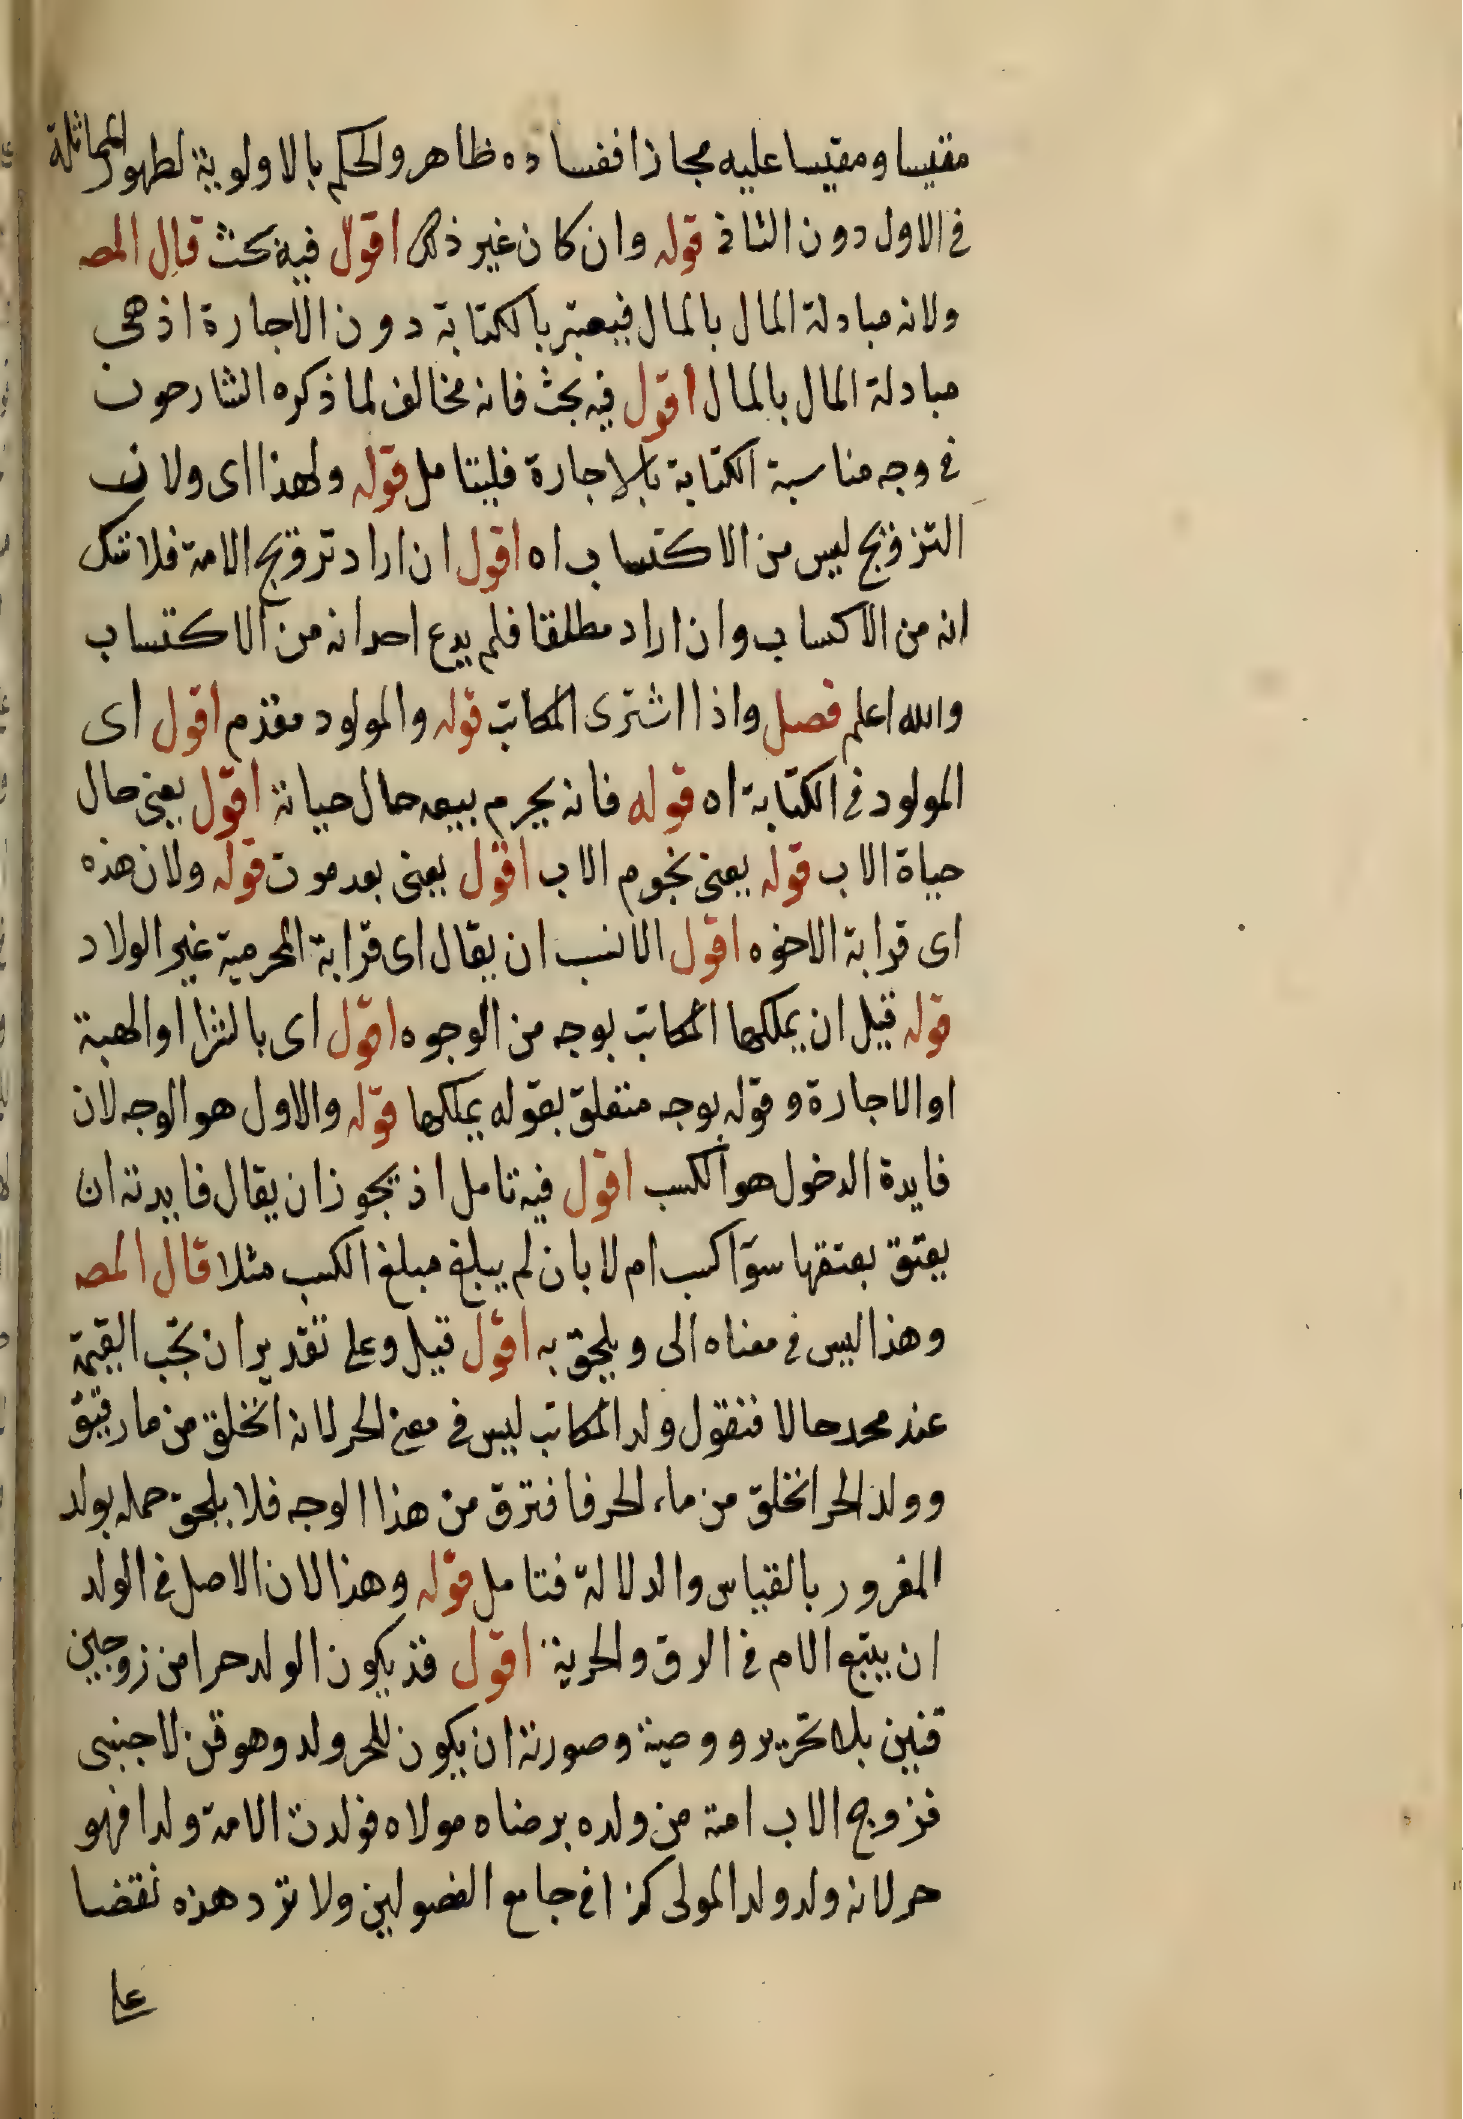 مقيسا ومقيسا عليه مجازا ففساده ظاهر والحكم بالاولوية لظهور المماثلة
في الاول دون الثاني قوله وان كان غير ذلك اقول فيه بحث قال المصه
ولانه مبادلة المال بالمال فيعتبر بالكتابة دون الاجارة اذ هي
مبادلة المال بالمال اقول فيه بحث فانه مخالف لما ذكره الشارحون
في وجه مناسبة الكتابة بالاجارة فليتامل قوله ولهذا اى ولان
التزويج ليس من الاكتساب اه اقول ان اراد تزويج الامة فلا شك
انه من الاكساب وان اراد مطلقا فلم يدع احد انه من الاكتساب
والله اعلم فصل واذا اشترى المكاتب قوله والمولود مقدم اقول اى
المولود في الكتابة اه قوله فانه يحرم بيعه حال حياته اقول يعنى حال
حياة الاب قوله يعنى نجوم الاب اقول يعنى بعد موت قوله ولان هذه
اى قرابة الاخوه اقول الانسب ان يقال اى قرابة المحرمية غير الولاد
قوله قيل ان يملكها المكاتب بوجه من الوجوه اقول اى بالشرا او الهبة
او الاجارة وقوله بوجه متعلق بقوله يملكها قوله والاول هو الوجه لان
فايدة الدخول هو الكسب اقول فيه تامل اذ يجوز ان يقال فايدته ان
يعتق بعتقها سوآ كسب ام لا بان لم يبلغ مبلغ الكسب مثلا قال المصه
وهذا ليس في معناه الى ويلحق به اقول قيل وعلى تقدير ان تجب القيمة
عند محمد حالا فنقول ولد المكاتب ليس في معنى الحر لانه انخلق من ما رقيق
وولد الحر انخلق من ماء الحر فافترق من هذا الوجه فلا يلحق حمله بولد
المغرور بالقياس والدلالة فتامل قوله وهذا لان الاصل في الولد
ان يتبع الام في الرق والحرية اقول قد يكون الولد حرا من زوجين
قنين بلا تحرير ووصية وصورته ان يكون للحر ولد وهو قن لاجنبى
فزوج الاب امته من ولده برضاه مولاه فولدت الامة ولدا فهو
حر لانه ولد ولد المولى كذا في جامع الفصولين ولا ترد هذه نقضا
على